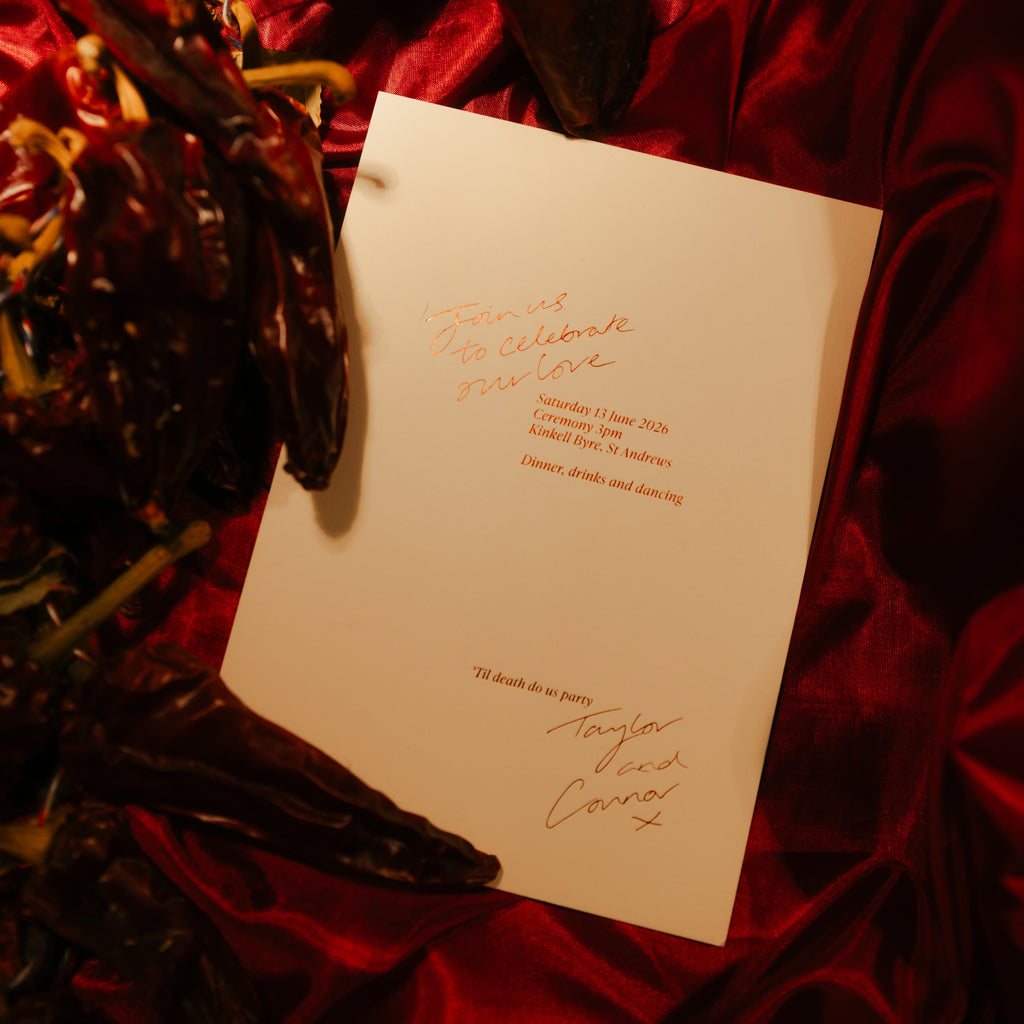 Join us
to celebrate
our love
Saturday 13 June 2026
Ceremony 3pm
Kinkell Byre, St Andrews
Dinner, drinks and dancing
‘Til death do us party
Taylor
and
Connor
x